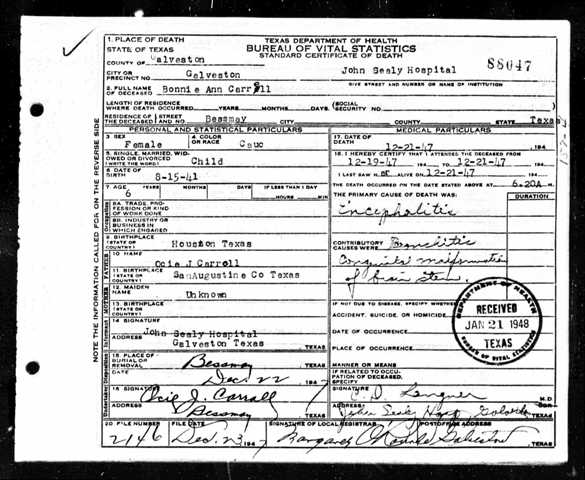 1. PLACE OF DEATH
STATE OF TEXAS
TEXAS DEPARTMENT OF HEALTH
BUREAU OF VITAL STATISTICS
STANDARD CERTIFICATE OF DEATH
COUNTY OF Galveston
88047
CITY OR PRECINCT NO. Galveston John Sealy Hospital
GIVE STREET AND NUMBER OR NAME OF INSTITUTION
2. FULL NAME OF DECEASED Bonnie Ann Carroll
LENGTH OF RESIDENCE WHERE DEATH OCCURRED YEARS MONTHS DAYS (SOCIAL SECURITY NO.
RESIDENCE OF THE DECEASED STREET AND NO. Bessmay CITY COUNTY STATE Texas
PERSONAL AND STATISTICAL PARTICULARS
3. SEX Female
4. COLOR OR RACE Cauc
5. SINGLE, MARRIED, WIDOWED OR DIVORCED (WRITE THE WORD) Child
6. DATE OF BIRTH 8-15-41
7. AGE 6 YEARS MONTHS DAYS
8A. TRADE, PROFESSION OR KIND OF WORK DONE
8B. INDUSTRY OR BUSINESS IN WHICH ENGAGED
9. BIRTHPLACE (STATE OR COUNTRY) Houston Texas
FATHER
10. NAME Ocie J Carroll
11. BIRTHPLACE (STATE OR COUNTRY) SanAugustine Co Texas
MOTHER
12. MAIDEN NAME Unknown
13. BIRTHPLACE (STATE OR COUNTRY)
14. SIGNATURE John Sealy Hospital
ADDRESS Galveston Texas TEXAS
15. PLACE OF BURIAL OR REMOVAL Bessmay TEXAS
DATE Dec. 22 194 7
16. SIGNATURE Ocie J. Carroll
ADDRESS Bessmay TEXAS
MEDICAL PARTICULARS
17. DATE OF DEATH 12-21-47
18. I HEREBY CERTIFY THAT I ATTENDED THE DECEASED FROM
12-19-47 TO 12-21-47
I LAST SAW ALIVE ON 12-21-47
THE DEATH OCCURRED ON THE DATE STATED ABOVE AT 6:20A M.
THE PRIMARY CAUSE OF DEATH WAS: DURATION
encephalitis
CONTRIBUTORY CAUSES WERE Bronchitis
Congenital malformation
of brain stem.
IF NOT DUE TO DISEASE, SPECIFY WHETHER
ACCIDENT, SUICIDE, OR HOMICIDE
DATE OF OCCURRENCE
PLACE OF OCCURRENCE
MANNER OR MEANS
IF RELATED TO OCCUPATION OF DECEASED, SPECIFY
SIGNATURE M.D.
ADDRESS John Sealy Hosp Galveston TEXAS
DEPARTMENT OF HEALTH
RECEIVED
JAN 21 1948
TEXAS
BUREAU OF VITAL STATISTICS
20. FILE NUMBER 2146
FILE DATE Dec. 23 194
SIGNATURE OF LOCAL REGISTRAR Margaret
POSTOFFICE ADDRESS Galveston TEXAS
NOTE THE INFORMATION CALLED FOR ON THE REVERSE SIDE